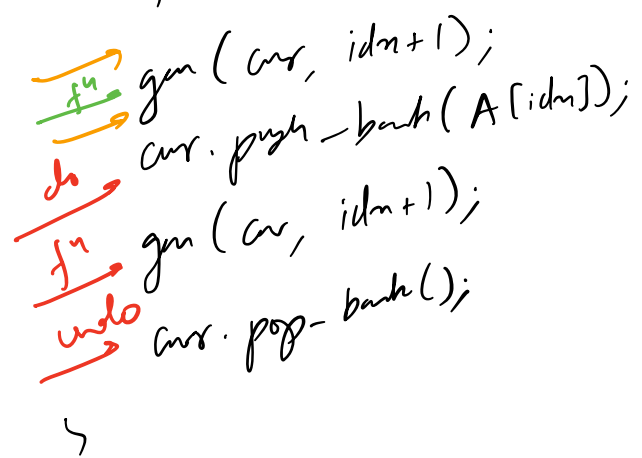 gen(cur, idx+1);
fn
cur.push_back(A[idx]);
do
gen(cur, idx+1);
fn
undo
cur.pop_back();
}